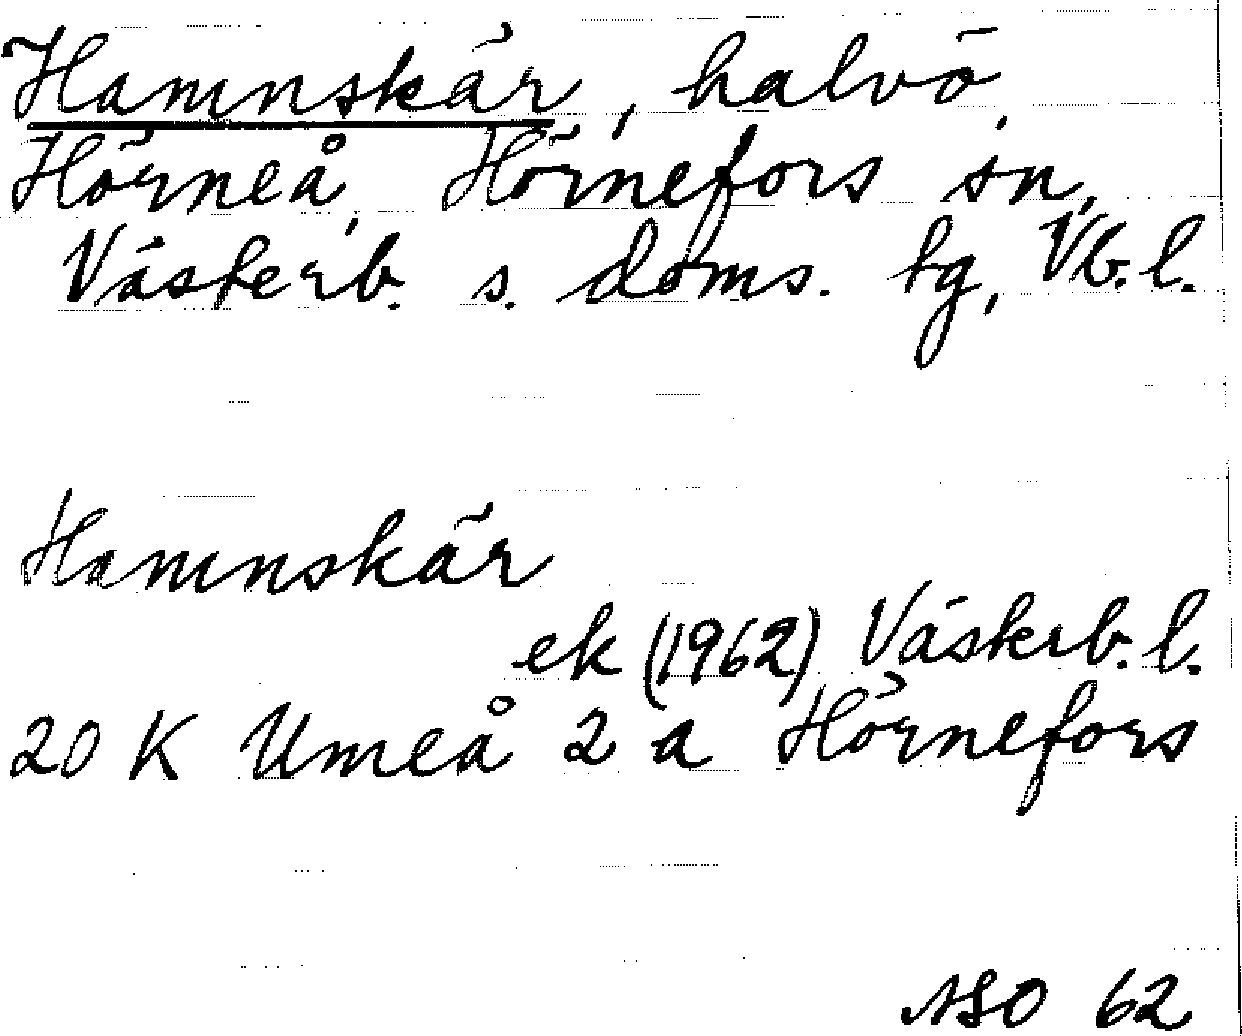 Hamnskär, halvö,
Hörneå, Hörnefors sn,
Västerb. s. doms. tg, Vb. l.
Hamnskär
ek (1962) Västerb. l.
20 K Umeå 2 a Hörnefors
ASO 62